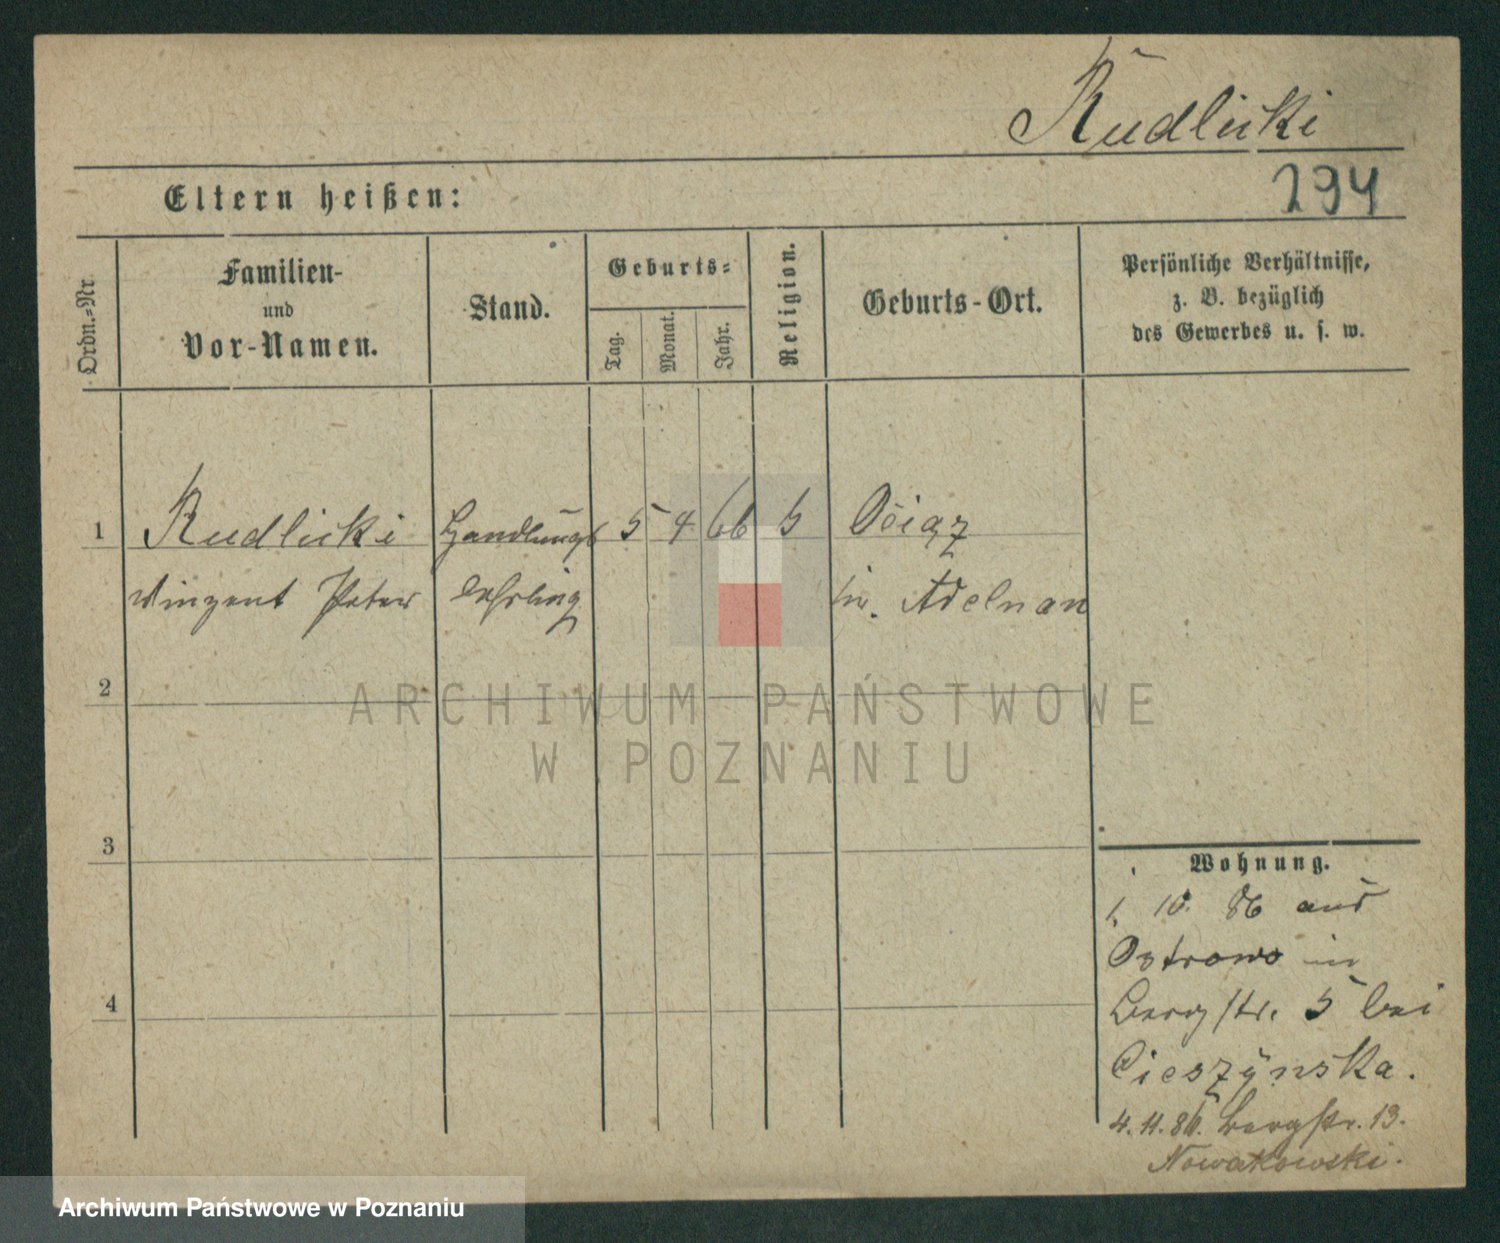 Rudlicki
294
Eltern heißen:
Ordn.-Nr
Familien-
und
Vor-Namen.
Stand.
Geburts-
Tag.
Monat.
Jahr.
Religion.
Geburts-Ort.
Persönliche Verhältnisse,
z. B. bezüglich
des Gewerbes u. s. w.
1 Rudlicki Handlungs 5 4 66 Ociąz
Vinzent Peter lehrling Adelnau
2
3
4
Wohnung.
1. 10. 86 aus
Ostrowo in
Bergstr. 5 bei
Cieszynska.
4. 11. 86. Bergstr. 13.
Nowakowski.
ARCHIWUM PAŃSTWOWE
W POZNANIU
Archiwum Państwowe w Poznaniu